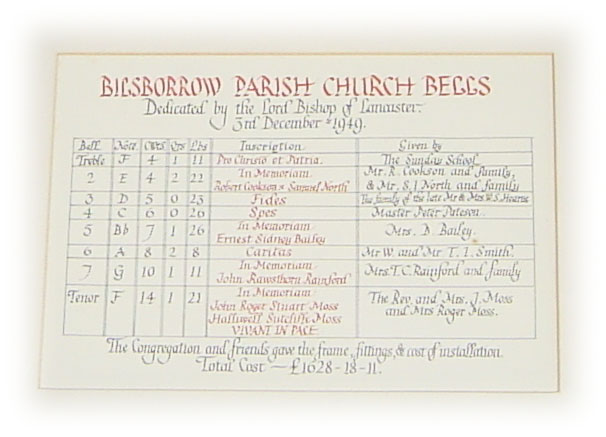 BILSBORROW PARISH CHURCH BELLS
Dedicated by the Lord Bishop of Lancaster.
3rd December 1949.
Bell Note Cwts Qrs Lbs Inscription Given by
Treble F 4 1 11 Pro Christo et Patria. The Sunday School
2 E 4 2 22 In Memoriam Robert Cookson & Samuel North Mr. R. Cookson and family, & Mr. S.J North and family
3 D 5 0 23 Fides The family of the late Mr & Mrs W.S. Hearne
4 C 6 0 26 Spes Master Peter Pateson.
5 Bb 7 1 26 In Memoriam Ernest Sidney Bailey Mrs. D. Bailey.
6 A 8 2 8 Caritas Mr W. and Mr T. I. Smith.
7 G 10 1 11 In Memoriam John Rawsthorn Rainford Mrs. T.C. Rainford and family
Tenor F 14 1 21 In Memoriam John Roger Stuart Moss Halliwell Sutcliffe Moss VIVANT IN PACE The Rev. and Mrs. J. Moss and Mrs Roger Moss.
The Congregation and friends gave the frame, fittings, & cost of installation.
Total Cost — £1628-18-11.